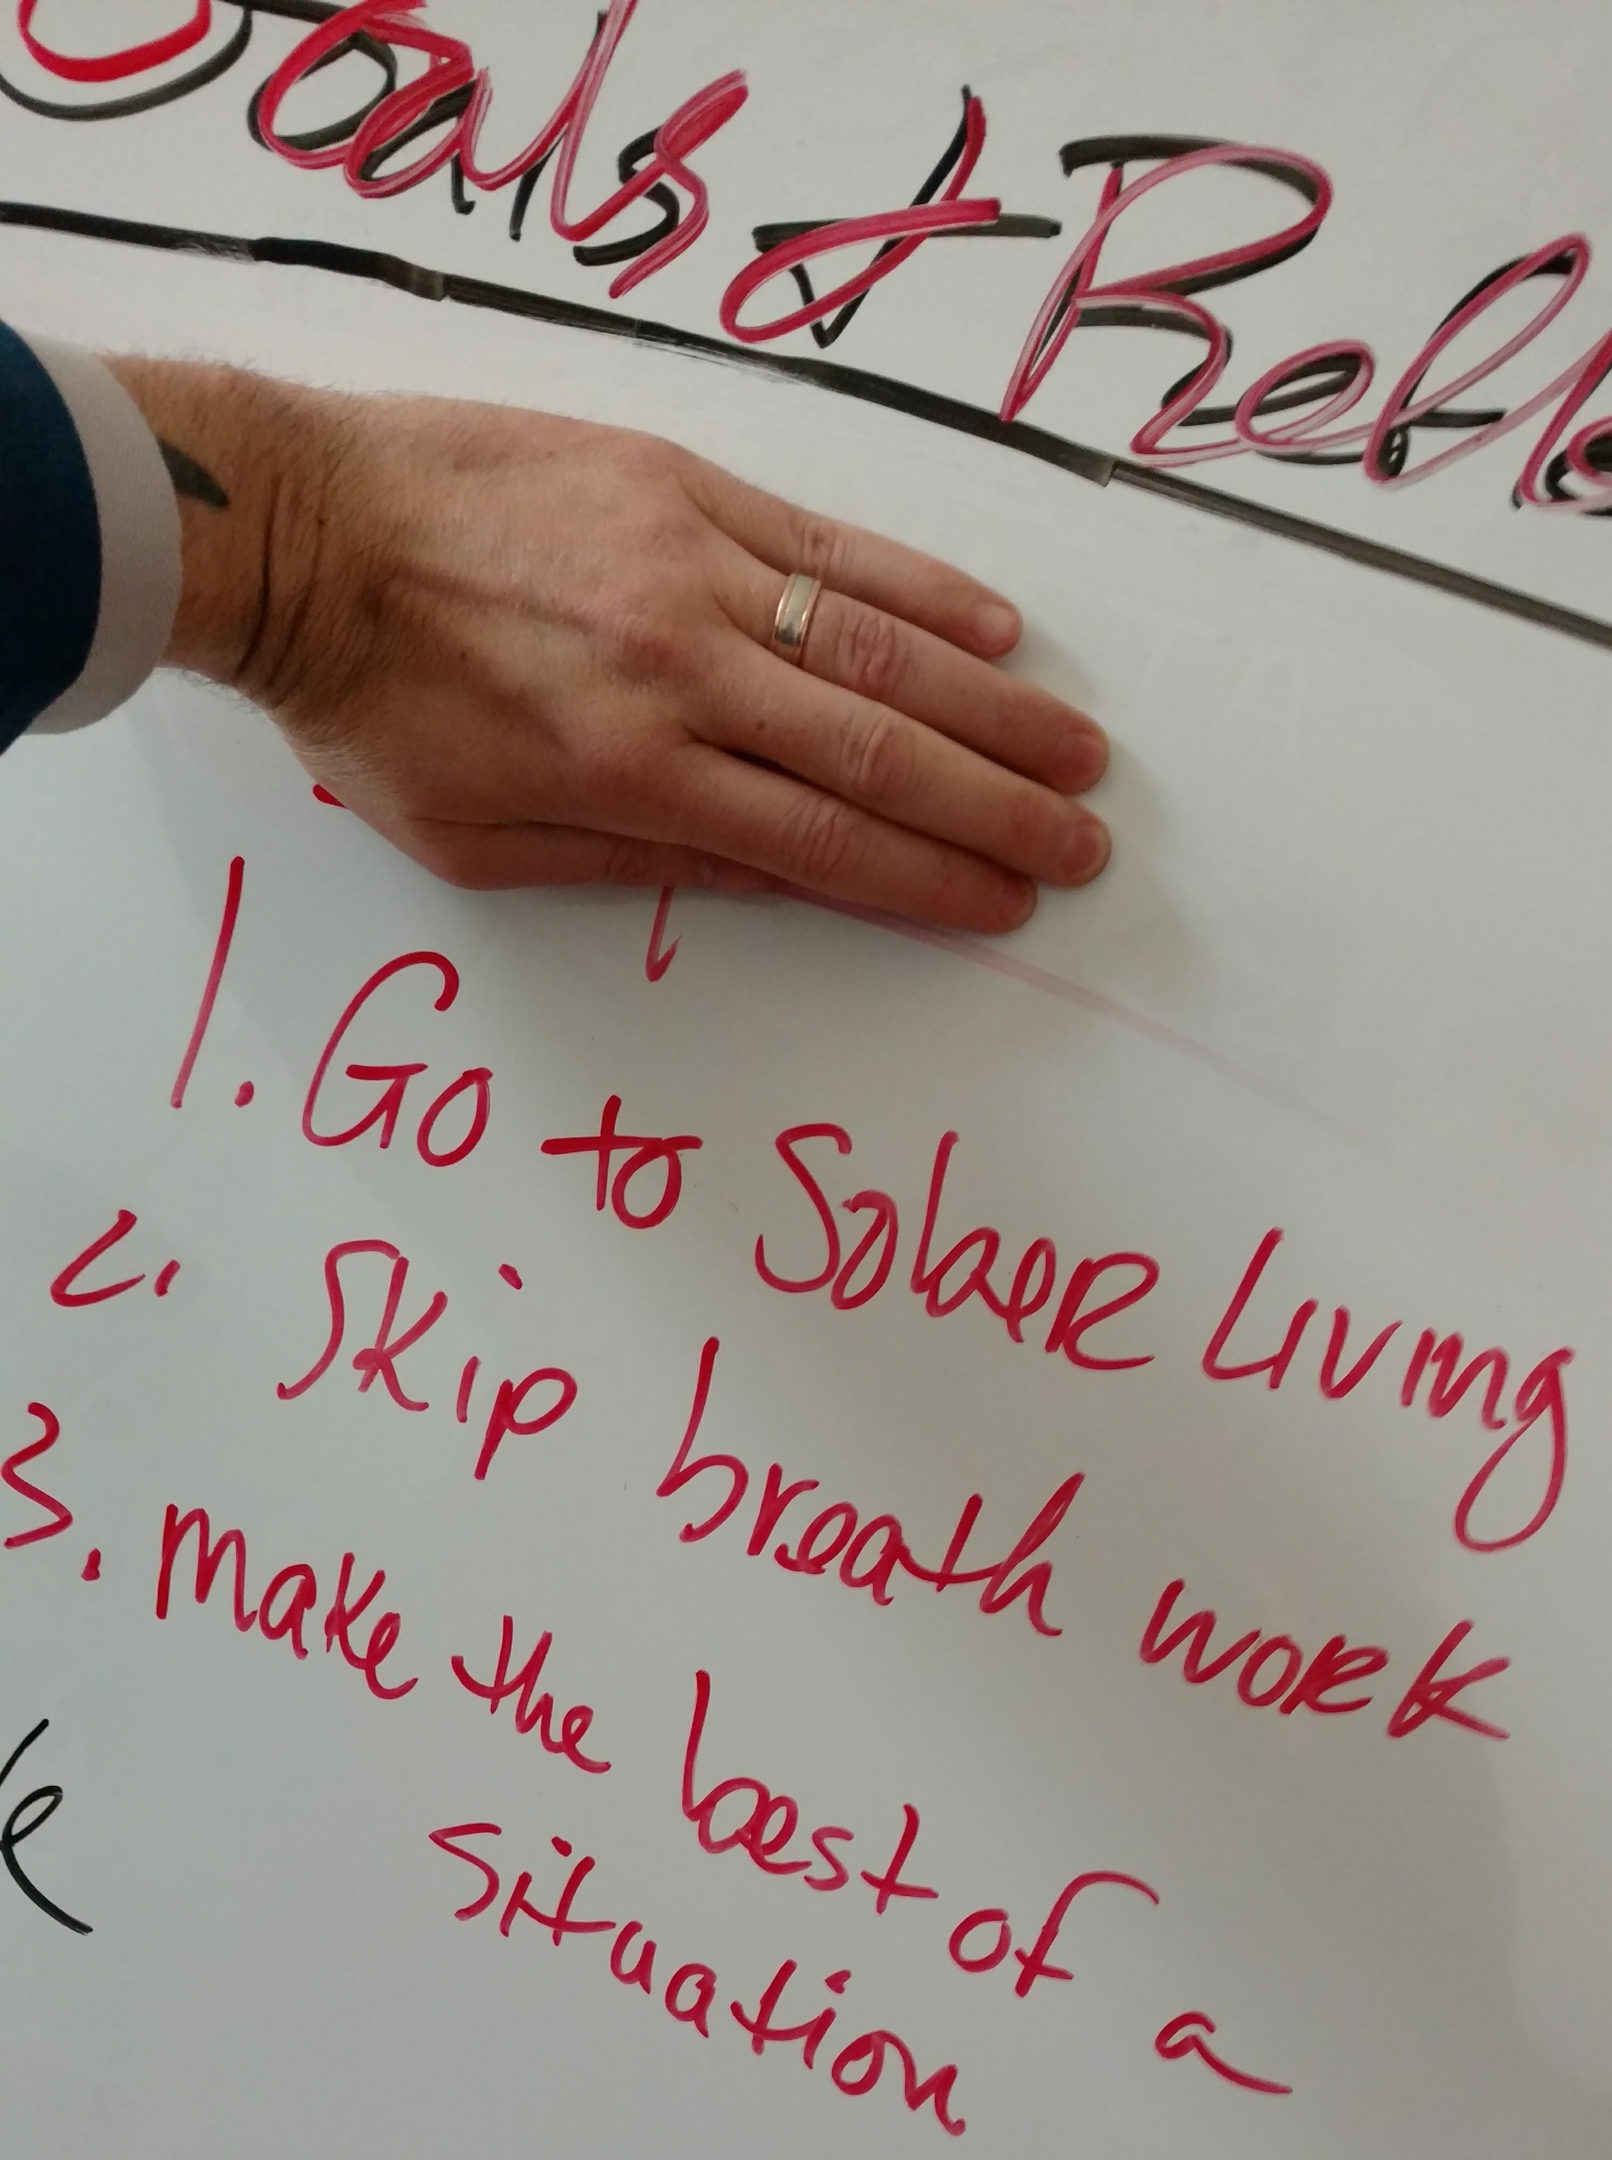 Goals & Refle
1. Go to Sober Living
2. Skip breath work
3. Make the best of a
situation